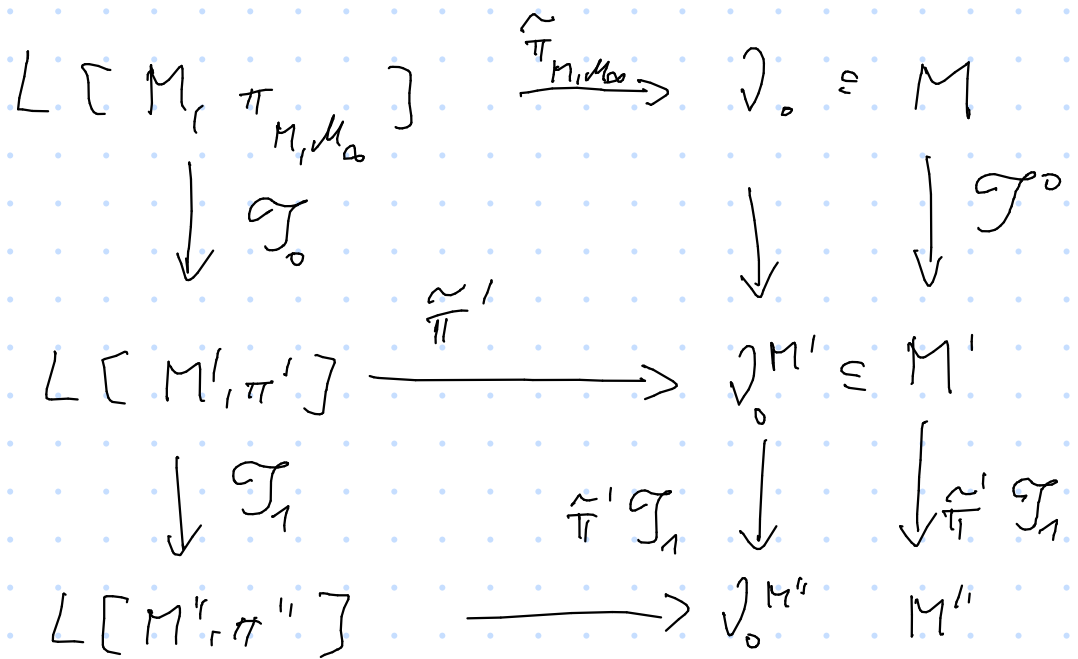 L [ M, π_{M,M_∞} ] \xrightarrow{\tilde{π}_{M,M_∞}} 𝒱_0 ⊆ M
↓ 𝒯_0 ↓ ↓ 𝒯^0
L [ M', π' ] \xrightarrow{\tilde{π}'} 𝒱_0^{M'} ⊆ M'
↓ 𝒯_1 \tilde{π}' 𝒯_1 ↓ ↓ \tilde{π}' 𝒯_1
L [ M'', π'' ] → 𝒱_0^{M''} M''